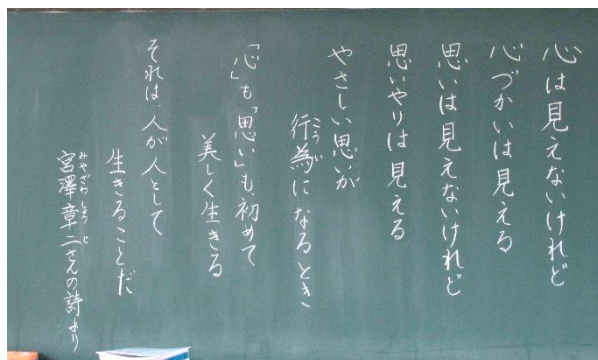 心は見えないけれど
心づかいは見える
思いは見えないけれど
思いやりは見える
やさしい思いが
行為になるとき
こうい
「心」も「思い」も、初めて
美しく生きる
それは、人が人として
生きることだ
宮澤章二さんの詩より
みやざわしょうじ